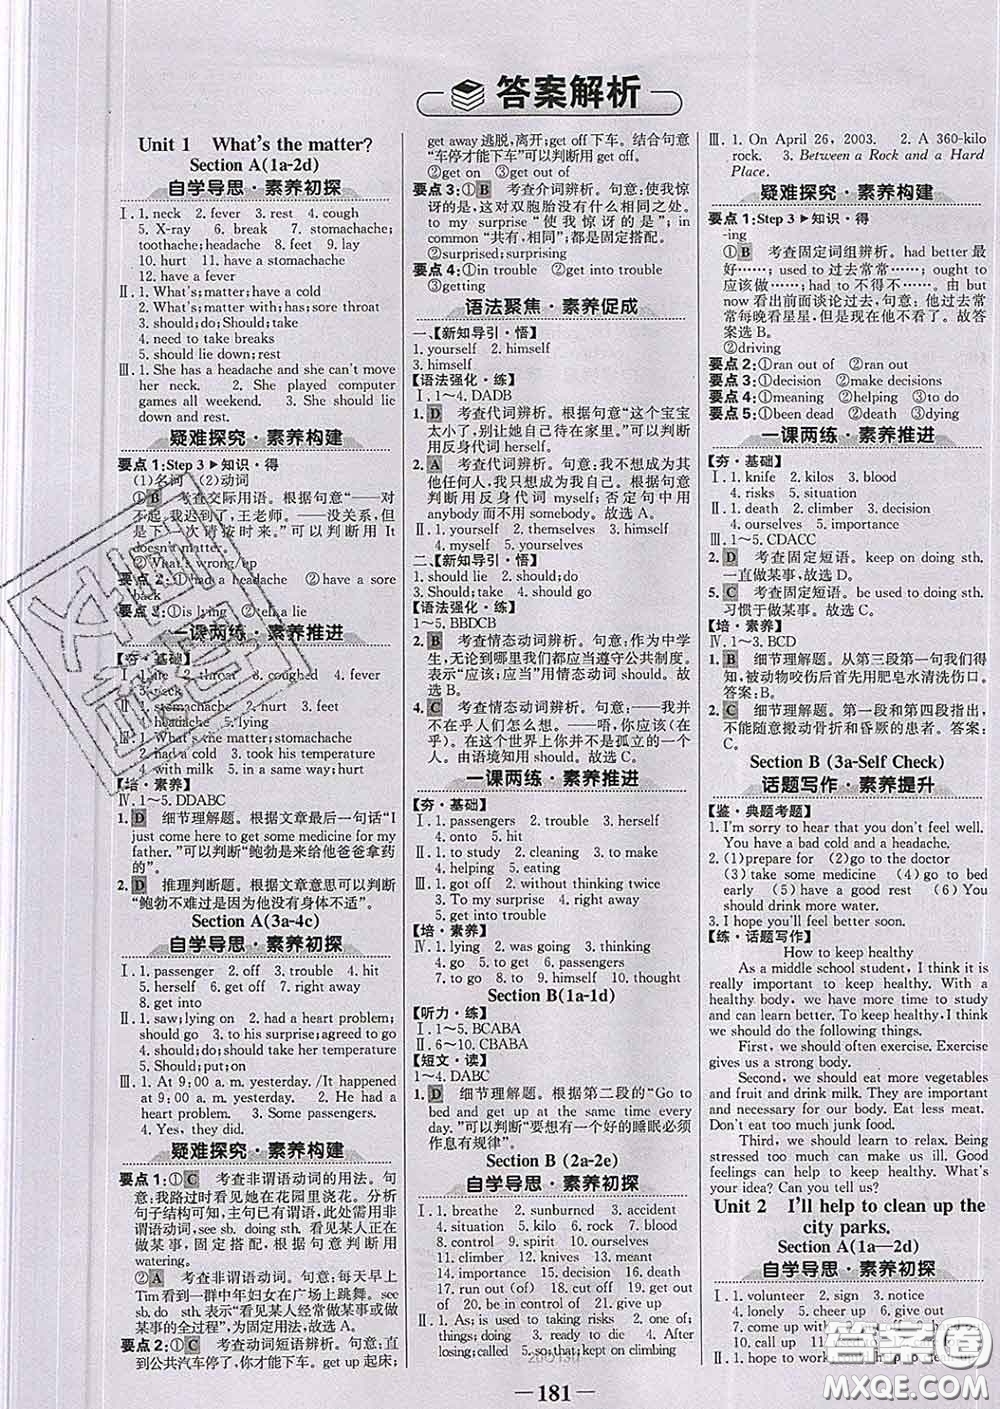 答案解析
Unit 1　What's the matter?
Section A(1a-2d)
自学导思·素养初探
Ⅰ. 1. neck　2. fever　3. rest　4. cough
5. X-ray　6. break　7. stomachache;
toothache;headache　8. feet　9. lay
10. hurt　11. have a stomachache
12. have a fever
Ⅱ. 1. What's;matter;have a cold
2. What's matter with;has;sore throat
3. should;do;Should;take
4. need to take breaks
5. should lie down;rest
Ⅲ. 1. She has a headache and she can't move
her neck.　2. She played computer
games all weekend.　3. She should lie
down and rest.
疑难探究·素养构建
要点 1:Step 3 ▶知识·得
(1)名词　(2)动词
①B　考查交际用语。根据句意“——对
不起,我迟到了,王老师。——没关系,但
是下一次请按时来。”可以判断用 It
doesn't matter.
②What's wrong/up
要点 2:①had a headache　②have a sore
back
要点 3:①is lying　②tell a lie
一课两练·素养推进
【夯·基础】
Ⅰ. 1. lie　2. throat　3. coughed　4. fever
5. neck
Ⅱ. 1. stomachache　2. hurt　3. feet
4. headache　5. lying
Ⅲ. 1. What's the matter;stomachache
2. had a cold　3. took his temperature
4. with milk　5. in a same way;hurt
【培·素养】
Ⅳ. 1～5. DDABC
1. D　细节理解题。根据文章最后一句话“I
just come here to get some medicine for my
father. ”可以判断“鲍勃是来给他爸爸拿药
的”。
2. D　推理判断题。根据文章意思可以判断
“鲍勃不难过是因为他没有身体不适”。
Section A(3a-4c)
自学导思·素养初探
Ⅰ. 1. passenger　2. off　3. trouble　4. hit
5. herself　6. get off　7. right away
8. get into
Ⅱ. 1. saw;lying　2. had a heart problem;
should go　3. to his surprise;agreed to go
4. should;do;should take her temperature
5. Should;put;on
Ⅲ. 1. At 9:00 a. m. yesterday. /It happened
at 9:00 a. m. yesterday.　2. He had a
heart problem.　3. Some passengers.
4. Yes, they did.
疑难探究·素养构建
要点 1:①C　考查非谓语动词的用法。句
意:我路过时看见她在花园里浇花。分析
句子结构可知,主句已有谓语,此处需用
非谓语动词,see sb. doing sth. 看见某人正在
做某事,固定搭配。根据句意判断用
watering.
②A　考查非谓语动词。句意:每天早上
Tim 看到一群中年妇女在广场上跳舞。see
sb. do sth. 表示“看见某人经常做某事或做
某事的全过程”,为固定用法,故选 A。
要点 2:①C　考查动词短语辨析。句意:直
到公共汽车停了,你才能下车。get up 起床;
get away 逃脱,离开;get off 下车。结合句意
“车停才能下车”可以判断用 get off.
②get on　③get off
要点 3:①B　考查介词辨析。句意:使我惊
讶的是,这对双胞胎没有什么相同之处。
to my surprise “使我惊讶的是”; in
common “共有,相同”;都是固定搭配。
②surprised;surprising
要点 4:①in trouble　②get into trouble
③getting
语法聚焦·素养促成
一、【新知导引·悟】
1. yourself　2. himself
3. himself
【语法强化·练】
Ⅰ. 1～4. DADB
1. D　考查代词辨析。根据句意“这个宝宝
太小了,别让她自己待在家里。”可以判断
用反身代词 herself.
2. A　考查代词辨析。句意:我不想成为其他
人,我只想成为我自己。根据句意可以判
断用反身代词 myself;否定句中用
anybody 而不用 somebody。故选 A。
Ⅱ. 1. yourself　2. themselves　3. himself
4. myself　5. yourselves
二、【新知导引·悟】
1. should lie　2. should do
3. Should;take　4. should go
【语法强化·练】
1～5. BBDCB
2. B　考查情态动词辨析。句意:作为中学
生,无论到哪里我们都应当遵守公共制度。
表示“应该;应当”用情态动词 should。故
选 B。
4. C　考查情态动词辨析。句意:——我并
不在乎人们怎么想。——唔,你应该(在
乎)。在这个世界上你并不是孤立的一个
人。由语境知用 should。故选 C。
一课两练·素养推进
【夯·基础】
Ⅰ. 1. passengers　2. trouble　3. herself
4. onto　5. hit
Ⅱ. 1. to study　2. cleaning　3. to make
4. helping　5. eating
Ⅲ. 1. got off　2. without thinking twice
3. to our surprise　4. waited for
5. should do some reading right away
【培·素养】
Ⅳ. 1. lying　2. down　3. was going
4. go　5. to get　6. passengers
7. to go　8. to　9. himself　10. thought
Section B(1a-1d)
【听力·练】
Ⅰ. 1～5. BCABA
Ⅱ. 6～10. CBABA
【短文·读】
1～4. DABC
1. D　细节理解题。根据第二段的“Go to
bed and get up at the same time every
day. ”可以判断“要想有一个好的睡眠必须
作息有规律”。
Section B (2a-2e)
自学导思·素养初探
Ⅰ. 1. breathe　2. sunburned　3. accident
4. situation　5. kilo　6. rock　7. blood
8. control　9. spirit　10. ourselves
11. climber　12. knives　13. meaning
14. importance　15. decision　16. death
17. run out (of)　18. cut off　19. get
out of　20. be in control of　21. give up
Ⅱ. 1. As; is used to taking risks　2. one of;
things; doing　3. ready to die　4. After
losing; too much　5. so;that;kept on climbing
Ⅲ. 1. On April 26, 2003.　2. A 360-kilo
rock.　3. Between a Rock and a Hard
Place.
疑难探究·素养构建
要点 1:Step 3 ▶知识·得
-ing
①B　考查固定词组辨析。had better 最
好……; used to 过去常常……; ought to
应该做……; had to 不得不……。由 but
now 看出前面谈论过去,句意:他过去常
常每晚看星星,但他现在不看了。故答
案选 B。
②driving
要点 2:①ran out of　②ran out
要点 3:①decision　②make decisions
要点 4:①meaning　②helping　③to do
要点 5:①been dead　②death　③dying
一课两练·素养推进
【夯·基础】
Ⅰ. 1. knife　2. kilos　3. blood
4. risks　5. situation
Ⅱ. 1. death　2. climber　3. decision
4. ourselves　5. importance
Ⅲ. 1～5. CDACC
2. D　考查固定短语。keep on doing sth.
一直做某事,故选 D。
5. C　考查固定短语。be used to doing sth.
习惯于做某事。故选 C。
【培·素养】
Ⅳ. 1～3. BCD
1. B　细节理解题。从第三段第一句我们得
知,被动物咬伤后首先用肥皂水清洗伤口。
答案:B。
2. C　细节理解题。第一段和第四段指出,
不能随意搬动骨折和昏厥的患者。答案:
C。
Section B (3a-Self Check)
话题写作·素养提升
【鉴·典题考题】
1. I'm sorry to hear that you don't feel well.
You have a bad cold and a headache.
2. (1)prepare for　(2)go to the doctor
(3)take some medicine　(4)go to bed
early　(5)have a good rest　(6)You
should drink more water.
3. I hope you'll feel better soon.
【练·话题写作】
How to keep healthy
As a middle school student, I think it is
really important to keep healthy. With a
healthy body, we have more time to study
and can learn better. To keep healthy, I think
we should do the following things.
First, we should often exercise. Exercise
gives us a strong body.
Second, we should eat more vegetables
and fruit and drink milk. They are important
and necessary for our body. Eat less meat.
Don't eat too much junk food.
Third, we should learn to relax. Being
stressed too much can make us ill. Good
feelings can help us keep healthy. What's
your idea? Can you tell us?
Unit 2　I'll help to clean up the
city parks.
Section A(1a—2d)
自学导思·素养初探
Ⅰ. 1. volunteer　2. sign　3. notice
4. lonely　5. cheer up　6. give out
7. come up with
10. call up
Ⅱ. 1. hope to work
— 181 —
答案圈
MXQE.COM